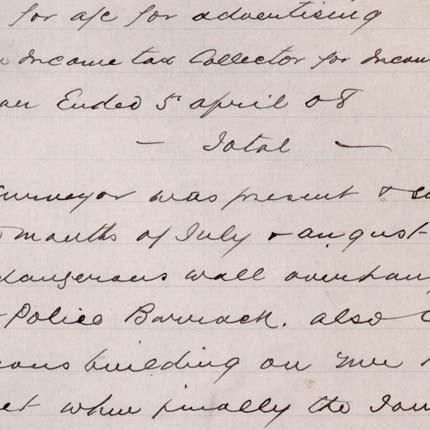 for a/c for advertising
Income tax Collector for Incom
Ended 5 april 08
— Total —
surveyor was present &
months of July & august
dangerous wall overhan
Police Barrack. also
building on
et when finally the